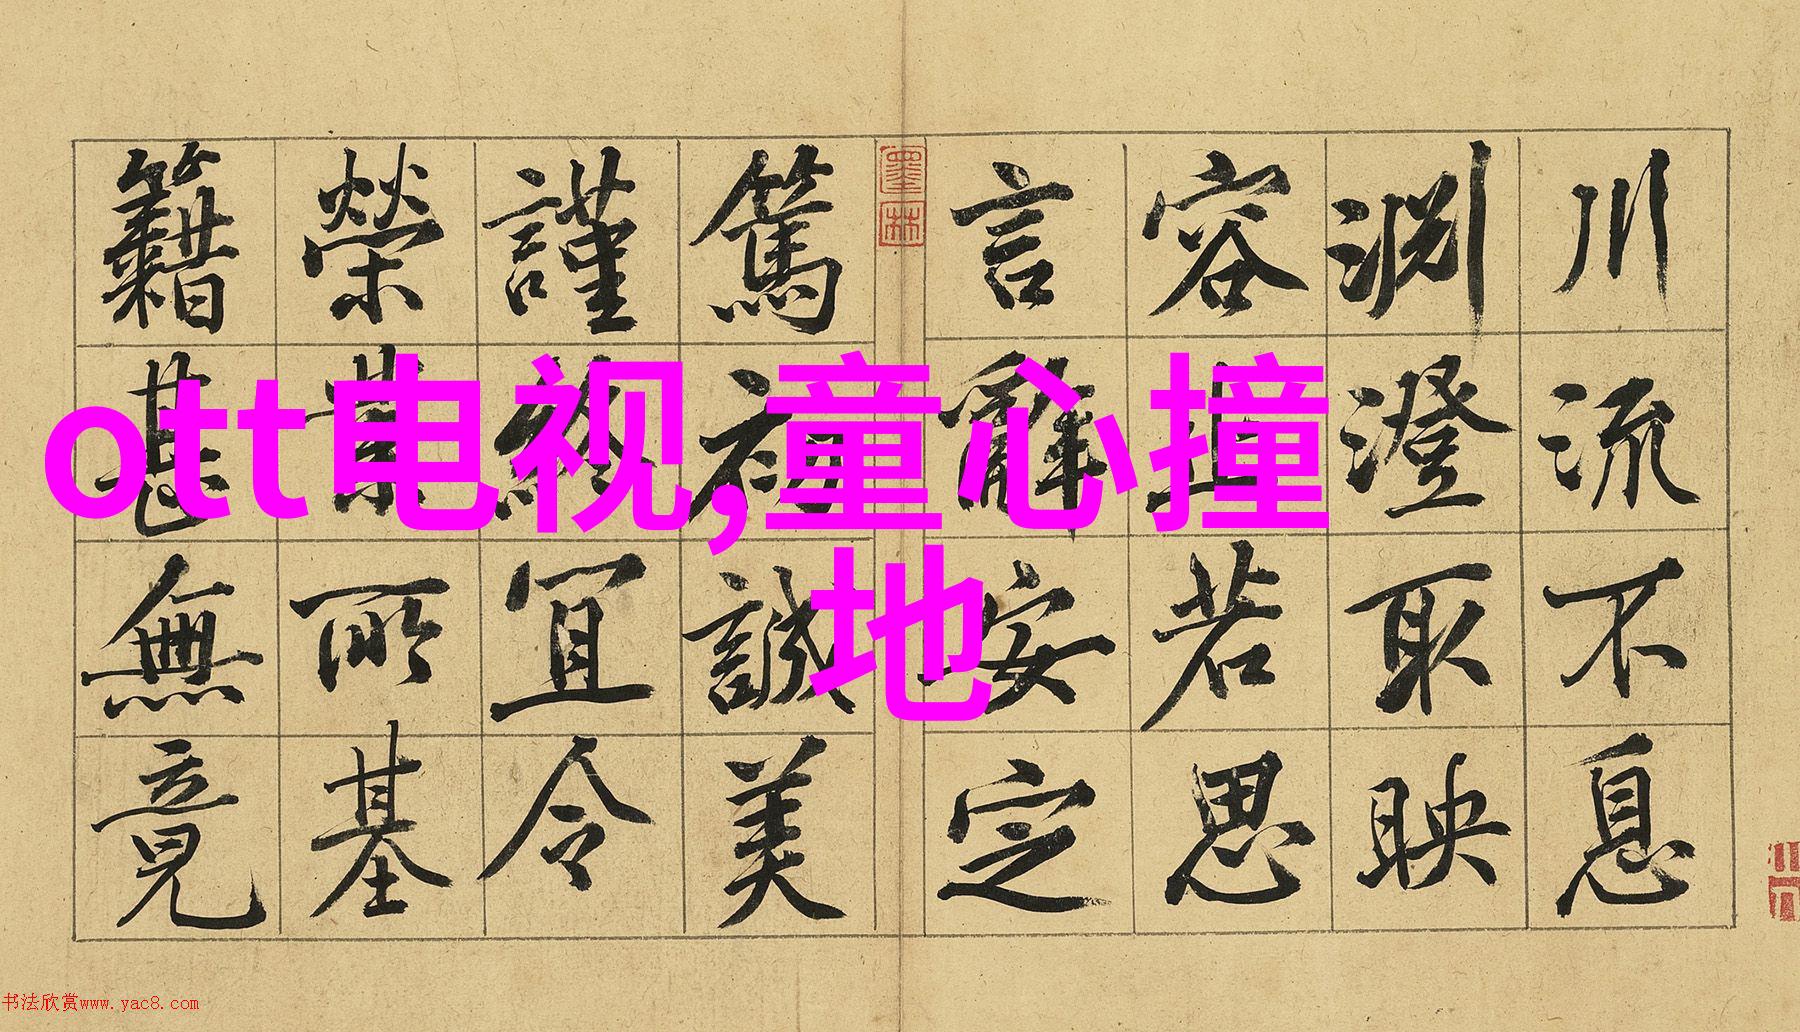 ott电视,童心撞
地
川流不息
渊澄取映
容止若思
言辭安定
篤初誠美
謹終宜令
榮業所基
籍甚無竟
墨林
书法欣赏www.yac8.com